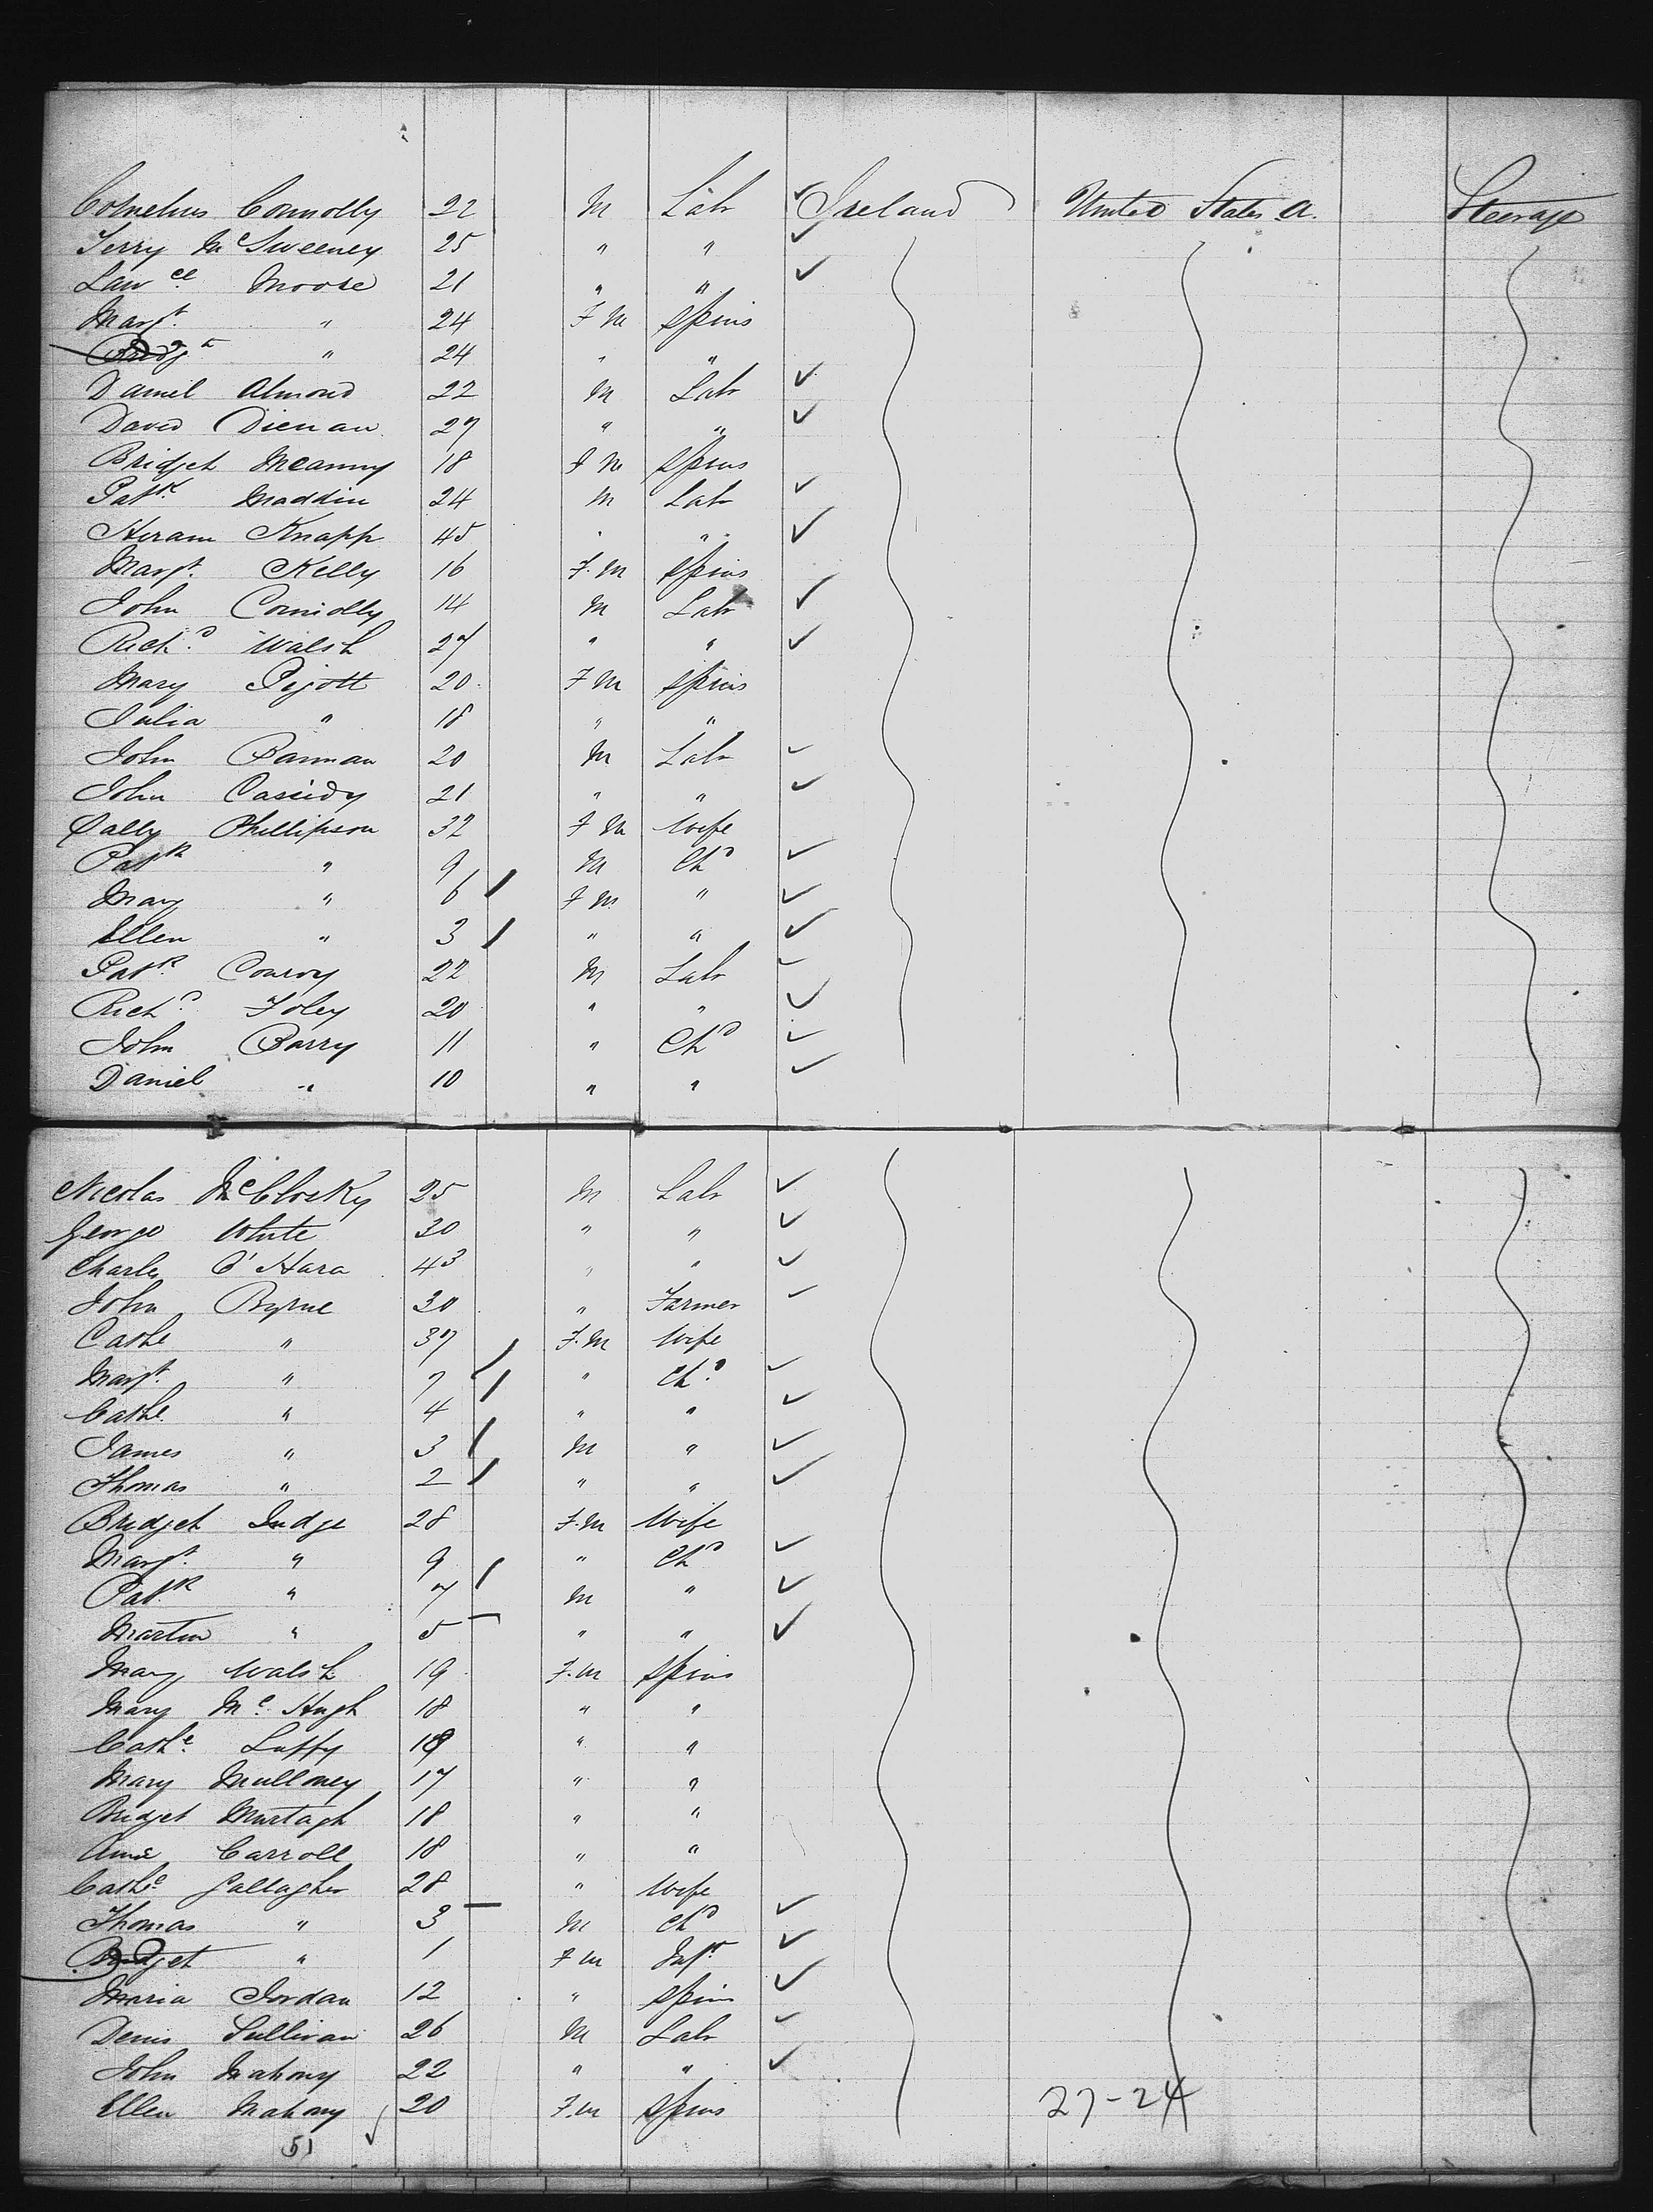 Cornelius Connolly 22 M Labr Ireland United States A. Steerage
Jerry McSweeney 25 " "
Lawce. Moore 21 " "
Margt. " 24 F M Spins
Bridgt " 24 " "
Daniel Almond 22 M Labr
David 27 " "
Bridget 18 F M Spins
Patk. Maddin 24 M Labr
Hiram Knapp 45 " "
Margt. Kelly 16 F. M Spins
John Connolly 14 M Labr
Richd. Walsh 27 " "
Mary Pigott 20 F M Spins
Julia " 18 " "
John Bannan 20 M Labr
John Cassidy 21 " "
Sally Phillipson 32 F M Wife
Patk " 9 M Chd
Mary " 6 F M "
Ellen " 3 " "
Patk. Conroy 22 M Labr
Richd. Foley 20 " "
John Barry 11 " Chd
Daniel " 10 " "
Nicolas McClosky 25 M Labr
George White 30 " "
Charles O'Hara 43 " "
John Byrne 30 " Farmer
Cathe " 37 F. M Wife
Margt. " 7 " Chd.
Cathe. " 4 " "
James " 3 M "
Thomas " 2 " "
Bridget Judge 28 F. M Wife
Margt. " 9 " Chd
Patk. " 7 M "
Martin " 5 " "
Mary Walsh 19 F. M Spins
Mary Mc. Hugh 18 " "
Cathe. Luffy 18 " "
Mary Mulloney 17 " "
Bridget Murtagh 18 " "
Anne Carroll 18 " "
Cathe. Gallagher 28 " Wife
Thomas " 3 M Chd
Bridget " 1 F M Inft.
Maria Jordan 12 " Spins
Denis Sullivan 26 M Labr
John Mahony 22 " "
Ellen Mahony 20 F. M Spins
51
27-24